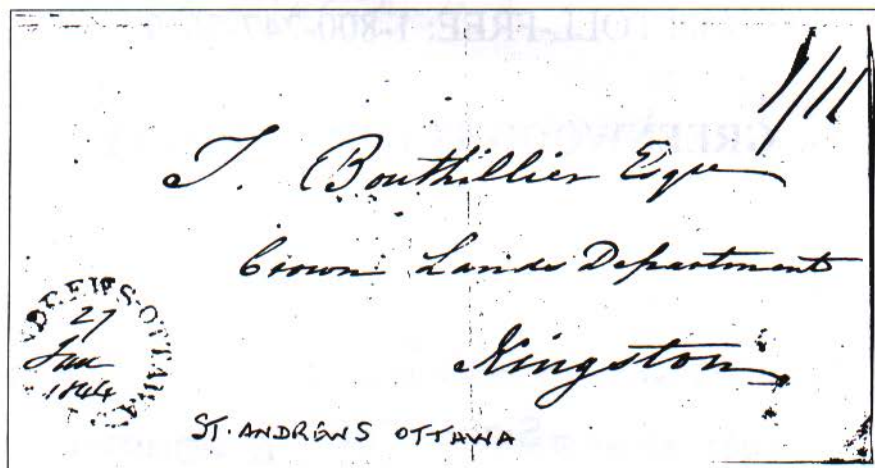 1/11
T. Bouthillier Esqre
Crown Lands Department
Kingston
DREWS-OTTAWA
27
Jan
1844
ST. ANDREWS OTTAWA